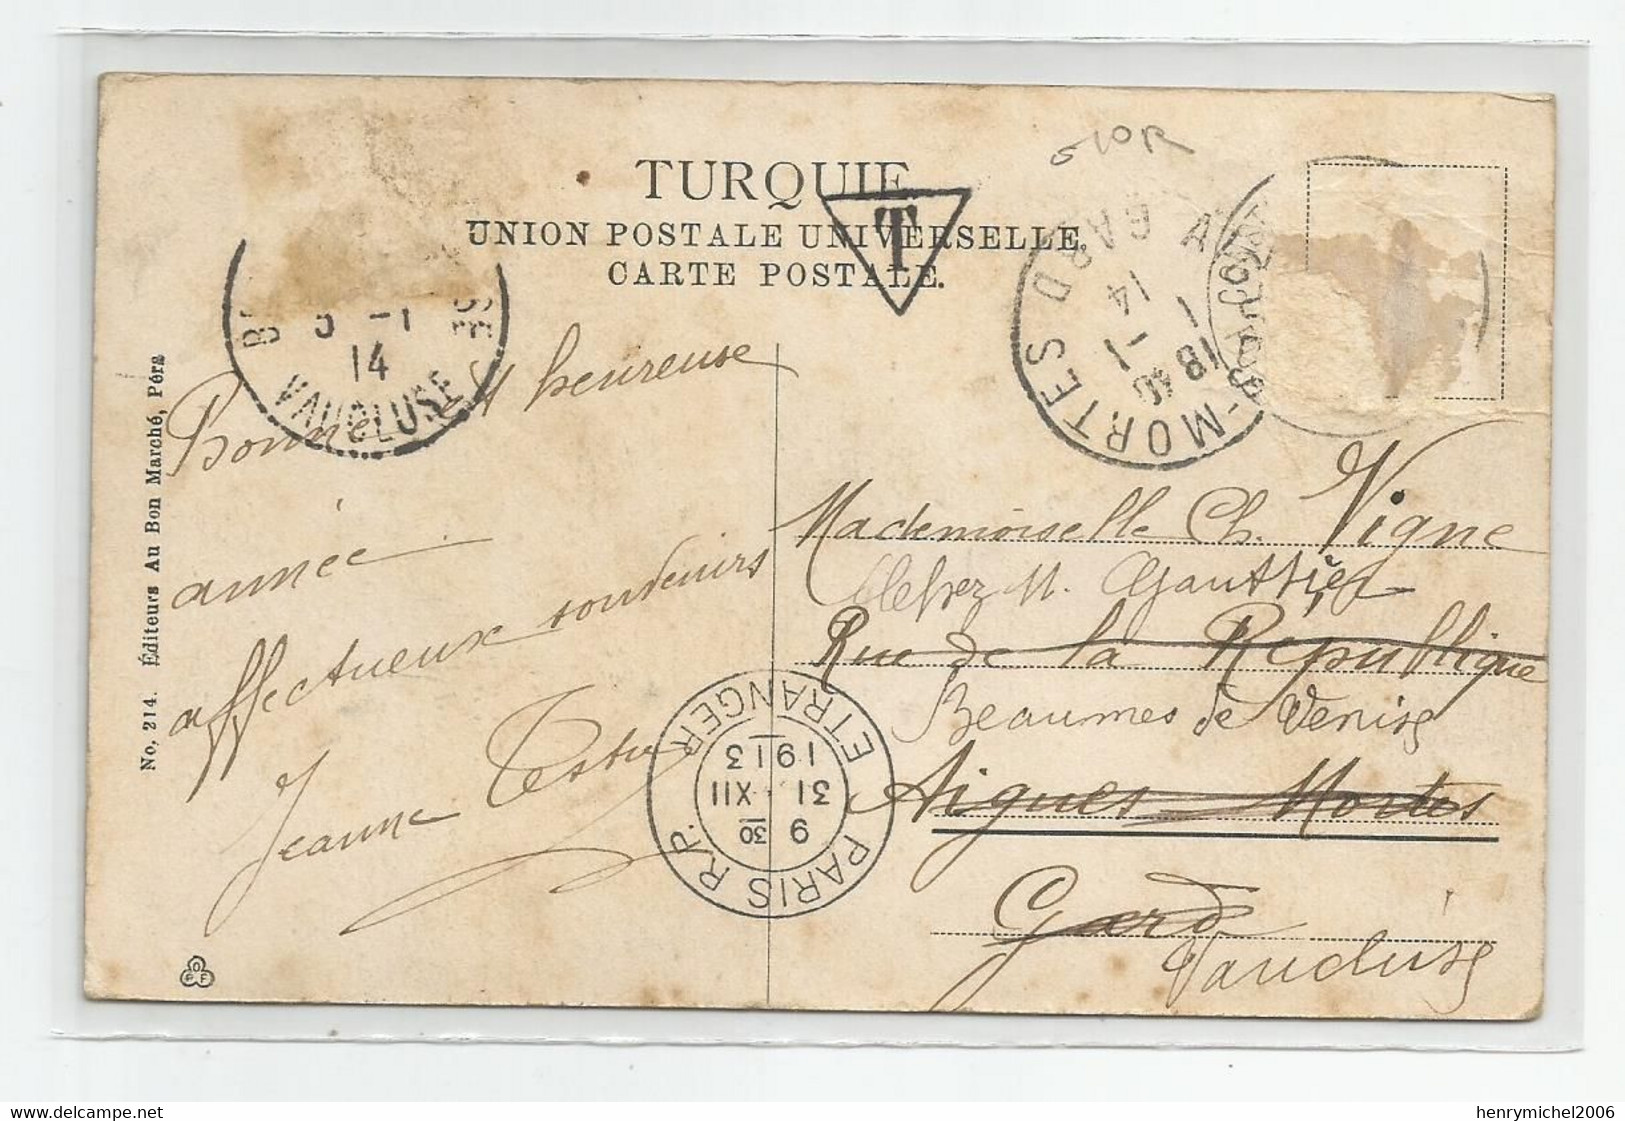 TURQUIE
UNION POSTALE UNIVERSELLE.
CARTE POSTALE.
T
GARD
AIGUES-MORTES
18 40
1 -1
14
5 -1
14
VAUCLUSE
No. 214. Éditeurs Au Bon Marché, Péra
Bonne et heureuse
année
affectueux souvenirs
Jeanne Testu
PARIS R.P. ETRANGER
9 30
31 XII
1913
Mademoiselle Ch. Vigne
chez M. Gauthier
Rue de la République
Beaumes de Venise
Aigues Mortes
Gard
Vaucluse
henrymichel2006